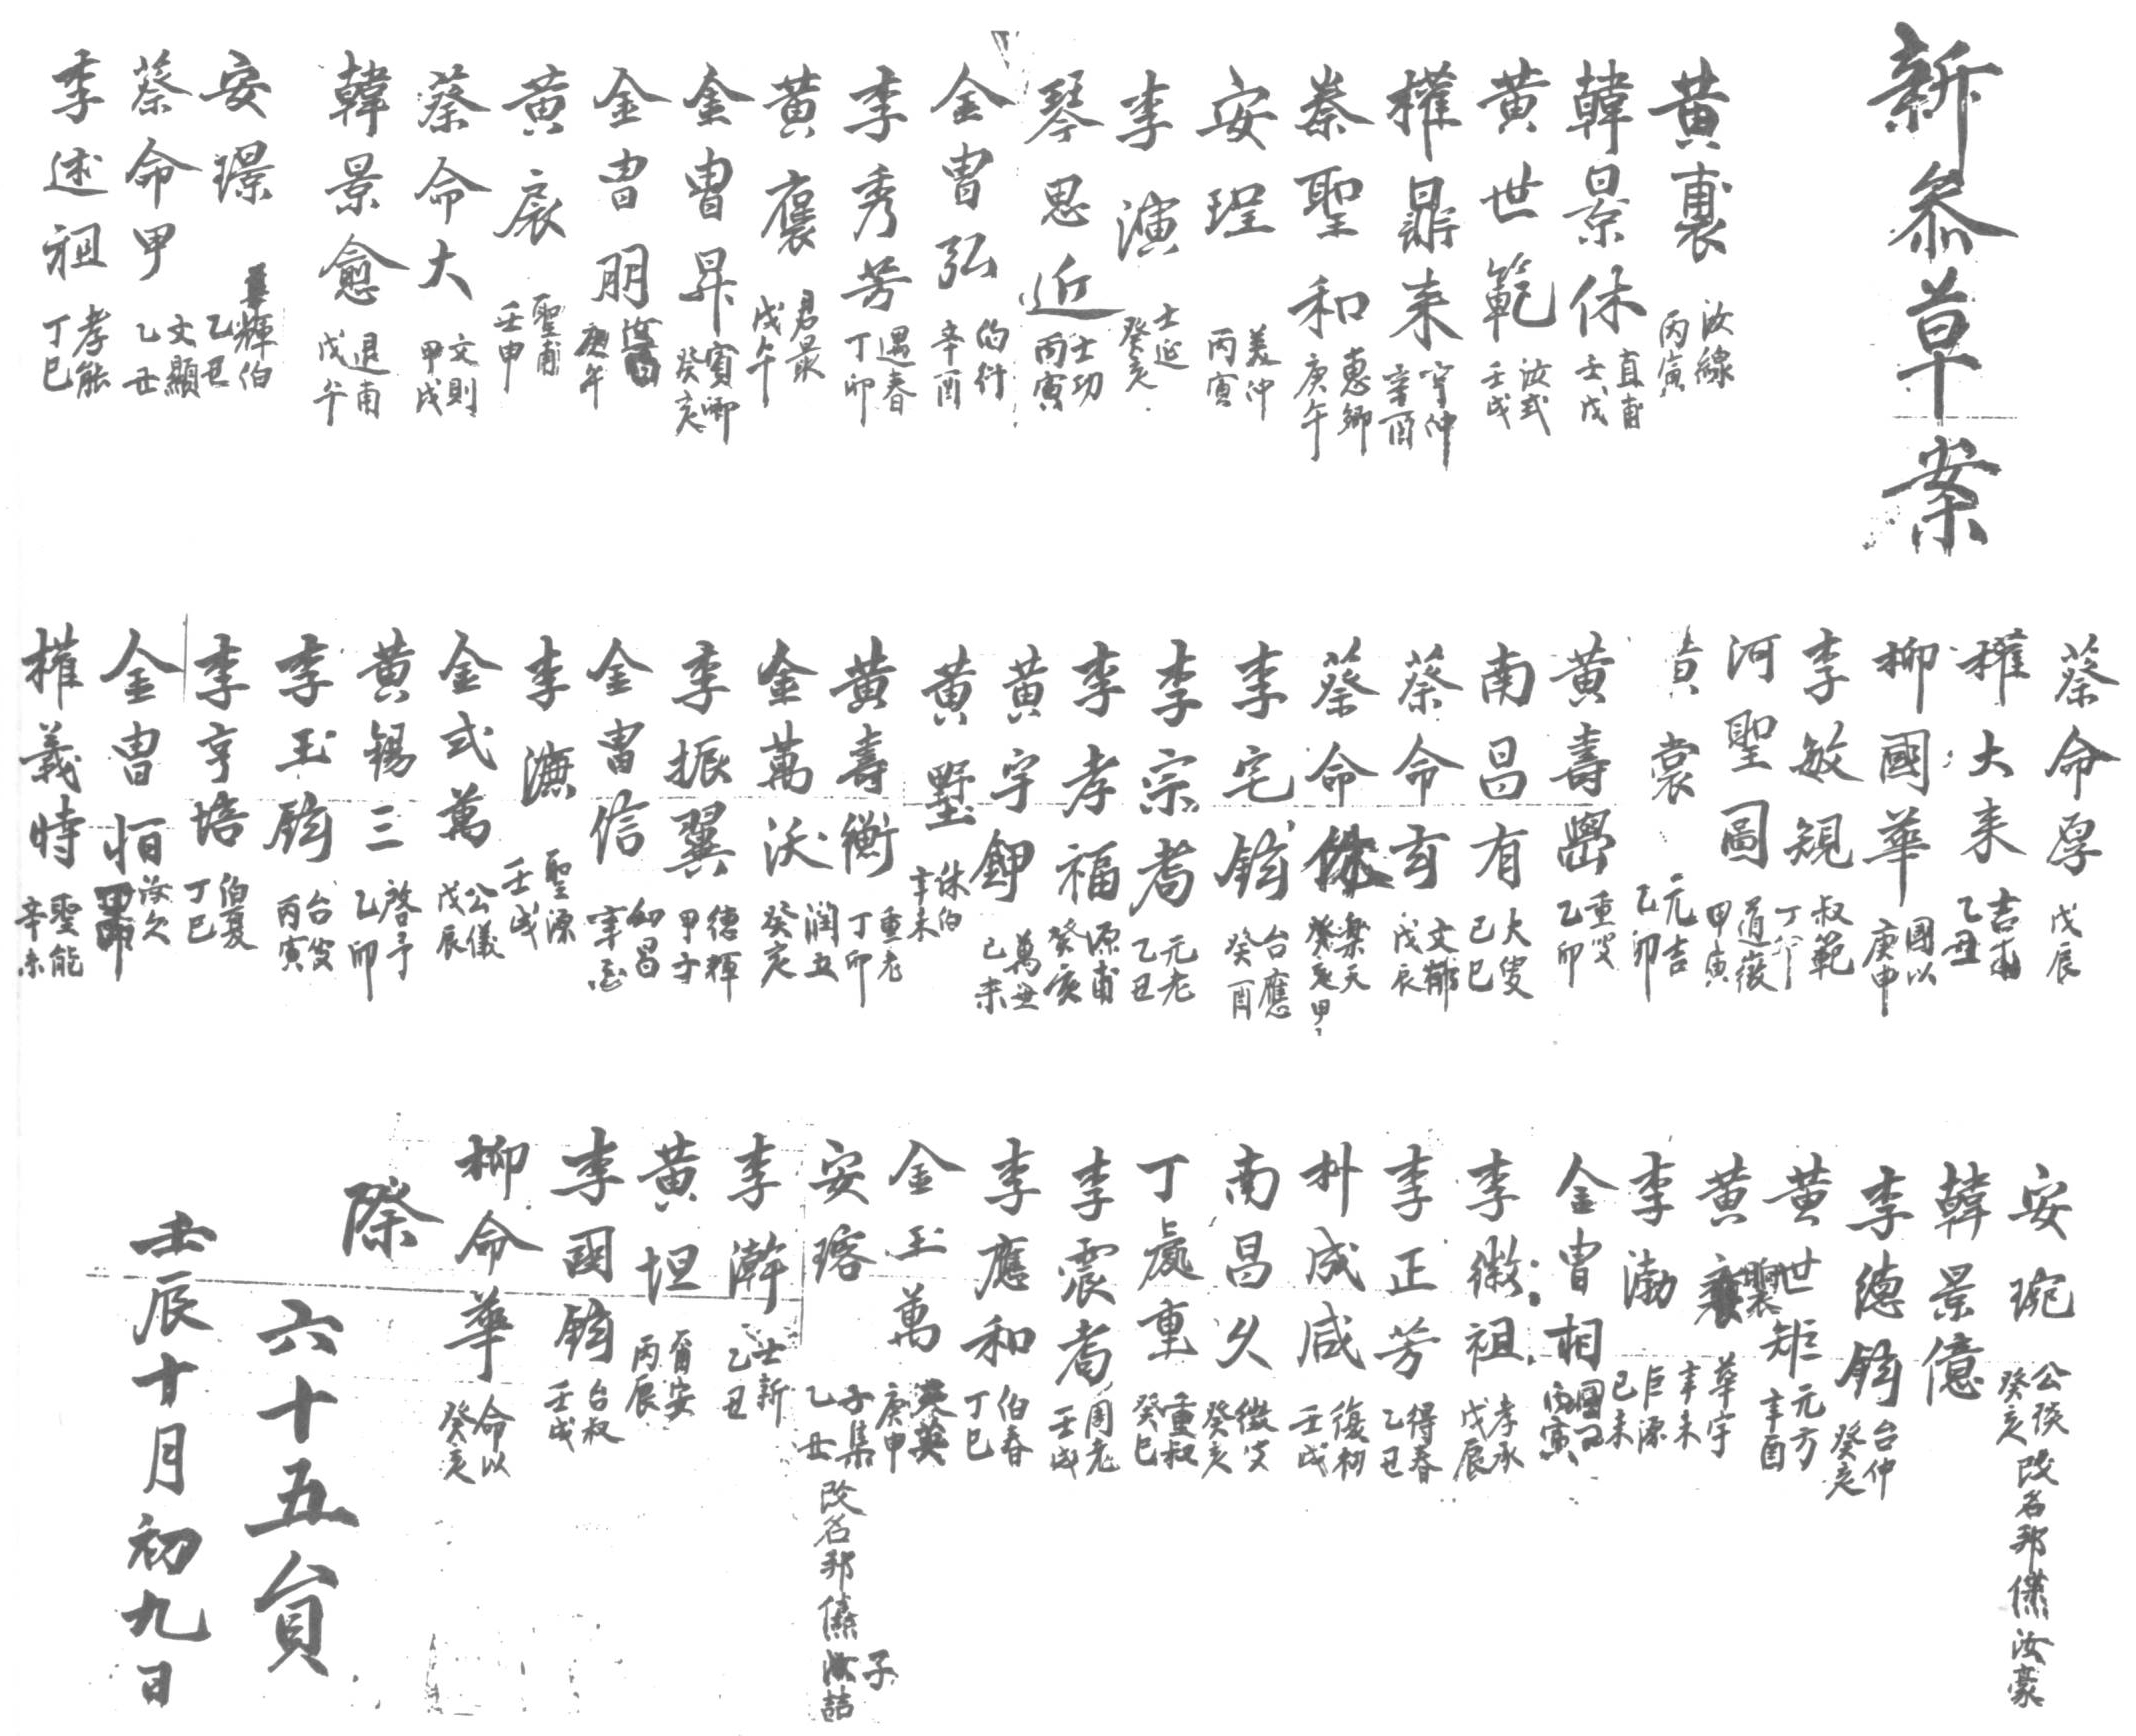 新參草案
黃裏 汝線 丙寅
韓景休 直甫 壬戌
黃世範 汝式 壬戌
權鼎來 守仲 辛酉
蔡聖和 惠卿 庚午
安珵 美仲 丙寅
李演 士延 癸亥
琴思近 士功 丙寅
金曺弘 伯衍 辛酉
李秀芳 遇春 丁卯
黃褱 君最 戊午
金曺昇 賓卿 癸亥
金曺朋 庚午
黃扆 聖甫 壬申
蔡命大 文則 甲戌
韓景愈 退甫 戊午
安璟 輝伯 乙丑
蔡命甲 文顯 乙丑
李述祖 孝能 丁巳
蔡命厚 戊辰
權大來 吉甫 乙丑
柳國華 國以 庚申
李敏規 叔範 丁卯
河聖圖 道徵 甲寅
黃裳 元吉 乙卯
黃壽嶨 重叟 乙卯
南昌有 大叟 己巳
蔡命玄 文 戊辰
蔡命休 樂天 癸亥 甲
李宅鎬 台應 癸酉
李宗耉 元老 乙丑
李孝福 源甫 癸亥
黃宇鉀 萬 己未
黃墅 休伯 辛未
黃壽衡 重老 丁卯
金萬沃 潤 癸亥
李振翼 德輝 甲子
金曺信 幼昌
李濂 聖源 壬戌
金式萬 公儀 戊辰
黃錫三 啓予 乙卯
李玉鎬 台叟 丙寅
李亨培 伯夏 丁巳
金曺恒 汝久
權義時 聖能 辛未
安琬 公琰 癸亥 改名邦儶 汝豪
韓景億
李德鎬 台仲 癸亥
黃世矩 元方 辛酉
黃 襲 華宇 辛未
李渤 巨源 己未
金曺相 國 丙寅
李徽祖 孝承 戊辰
李正芳 得春 乙丑
朴成咸 復初 壬戌
南昌久 徵叟 癸亥
丁處重 重叔 癸巳
李震耉 周老 壬戌
李應和 伯春 丁巳
金玉萬 英 庚申
安瑢 子集 乙丑 改名邦僖 汝喆 子
李瀚 士新 乙丑
黃坦 甫安 丙辰
李國鎬 台叔 壬戌
柳命華 命以 癸亥
際
六十五員
壬辰十月初九日